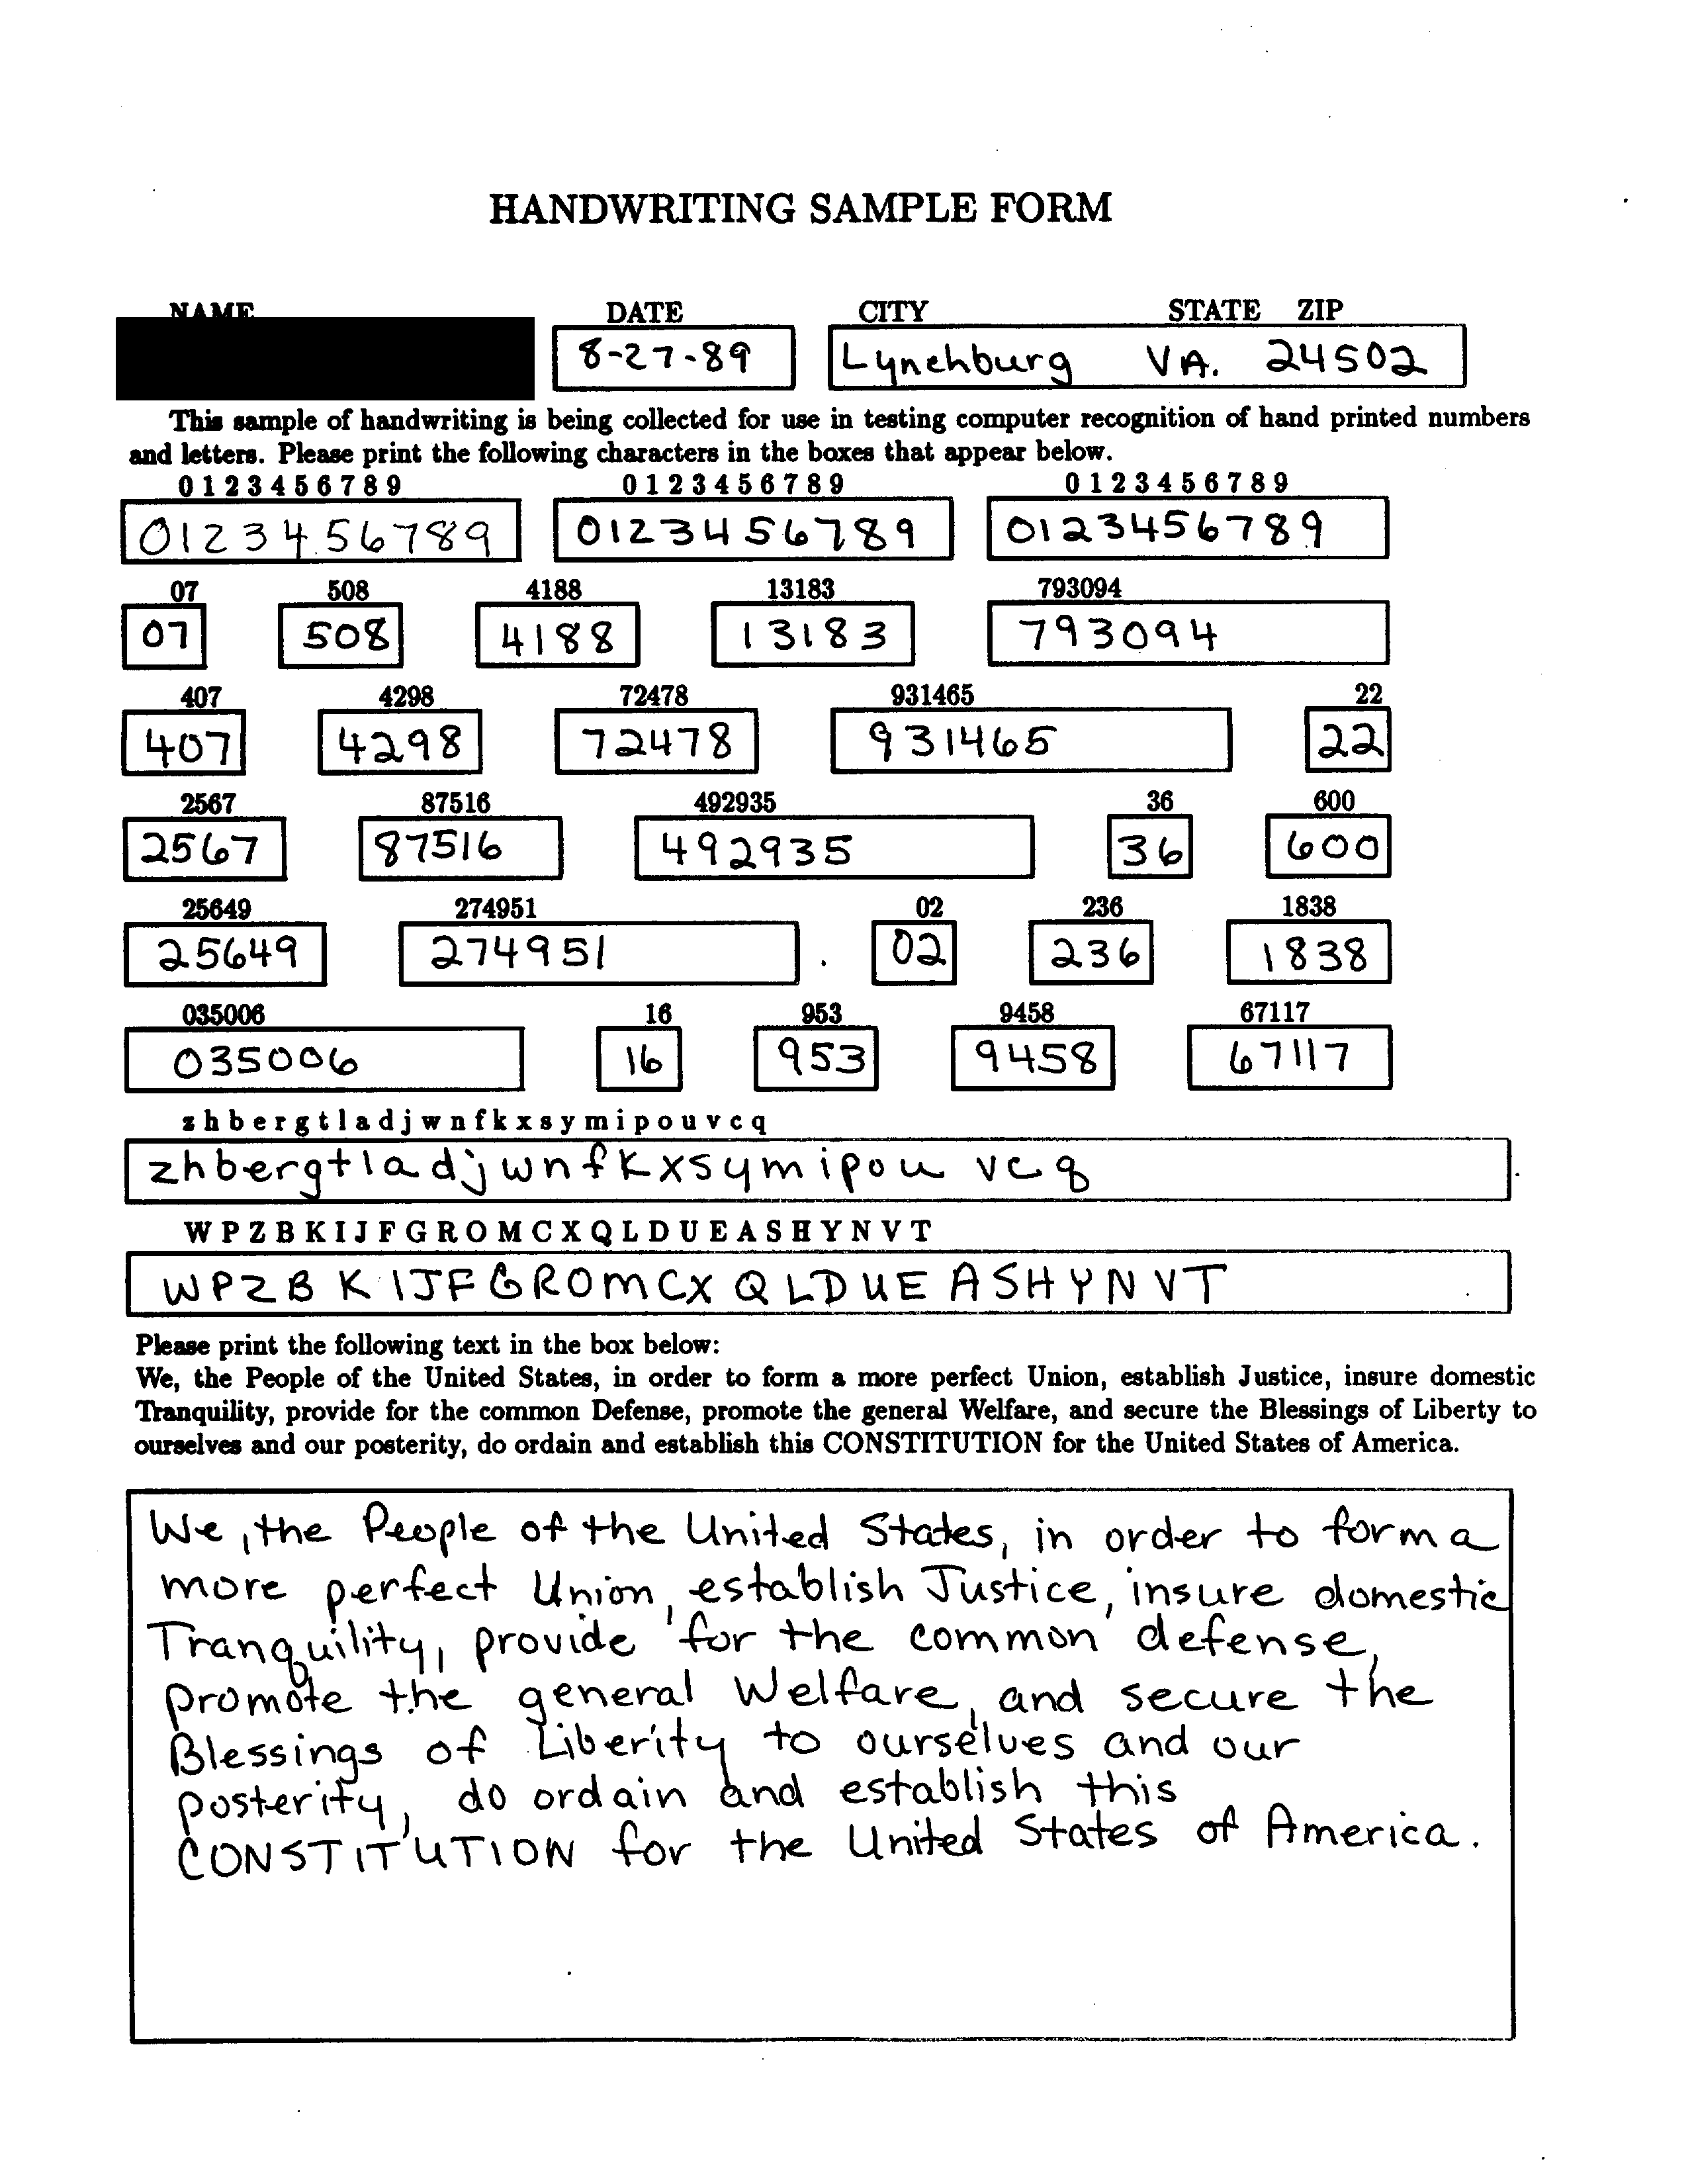 HANDWRITING SAMPLE FORM
NAME DATE CITY STATE ZIP
8-27-89 Lynchburg VA. 24502
This sample of handwriting is being collected for use in testing computer recognition of hand printed numbers
and letters. Please print the following characters in the boxes that appear below.
0 1 2 3 4 5 6 7 8 9 0 1 2 3 4 5 6 7 8 9 0 1 2 3 4 5 6 7 8 9
0123456789 0123456789 0123456789
07 508 4188 13183 793094
07 508 4188 13183 793094
407 4298 72478 931465 22
407 4298 72478 931465 22
2567 87516 492935 36 600
2567 87516 492935 36 600
25649 274951 02 236 1838
25649 274951 02 236 1838
035006 16 953 9458 67117
035006 16 953 9458 67117
z h b e r g t l a d j w n f k x s y m i p o u v c q
zhbergtladjwnfkxsymipou vcq
W P Z B K I J F G R O M C X Q L D U E A S H Y N V T
WPZB K IJFGROMCX QLDUE ASHYNVT
Please print the following text in the box below:
We, the People of the United States, in order to form a more perfect Union, establish Justice, insure domestic
Tranquility, provide for the common Defense, promote the general Welfare, and secure the Blessings of Liberty to
ourselves and our posterity, do ordain and establish this CONSTITUTION for the United States of America.
We, the People of the United States, in order to form a
more perfect Union, establish Justice, insure domestic
Tranquility, provide for the common defense,
promote the general Welfare, and secure the
Blessings of Liberity to ourselves and our
posterity, do ordain and establish this
CONSTITUTION for the United States of America.